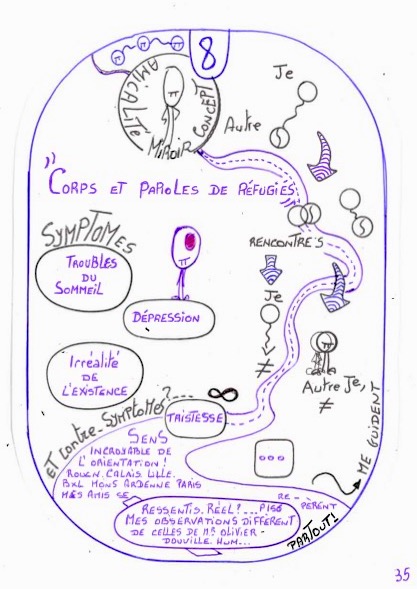 8
AMICALITÉ
MIROIR
CONCEPT
Je
Autre
" CORPS ET PAROLES DE RÉFUGIÉS "
SYMPTOMES
TROUBLES
DU
SOMMEIL
RENCONTRES
DÉPRESSION
Je
≠
Irréalité
DE
L'EXISTENCE
Autre Je,
≠
ET CONTRE-SYMPTOMES?---
∞
TRISTESSE
ME GUIDENT
SENS
INCROYABLE DE
L'ORIENTATION!
ROUEN. CALAIS. LILLE.
BXL MONS ARDENNE PARIS
MES AMIS SE
RE - PÈRENT
PARTOUT!
RESSENTIS. RÉEL? ... P150
MES OBSERVATIONS DIFFÈRENT
DE CELLES DE MR OLIVIER -
DOUVILLE. HUM...
35